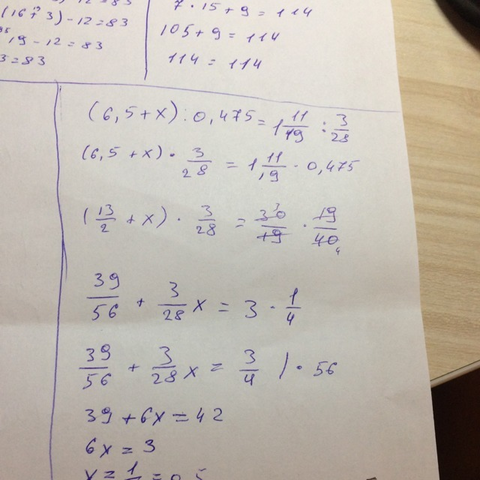 (16+3)-12=83
19-12=83
=83
7·15+9=114
105+9=114
114=114
(6,5+x):0,475=1 11/19 : 3/28
(6,5+x)·3/28=1 11/19·0,475
(13/2+x)·3/28=30/19·19/40
39/56+3/28x=3·1/4
39/56+3/28x=3/4 |·56
39+6x=42
6x=3